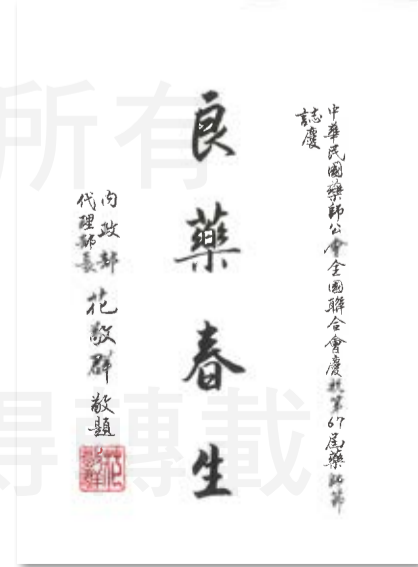 中華民國藥師公會全國聯合會慶祝第67屆藥師節
誌慶
良藥春生
內政部
代理部長
花敬群 敬題
花敬群
所有
得轉載